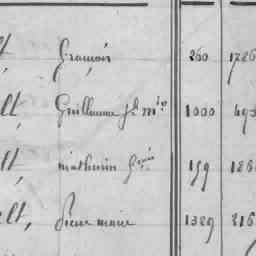 lt, François 260 1786
lt, Guillaume Jh Mie 1000 493
lt, mathurin 159 186
elt, Pierre marie 1329 216